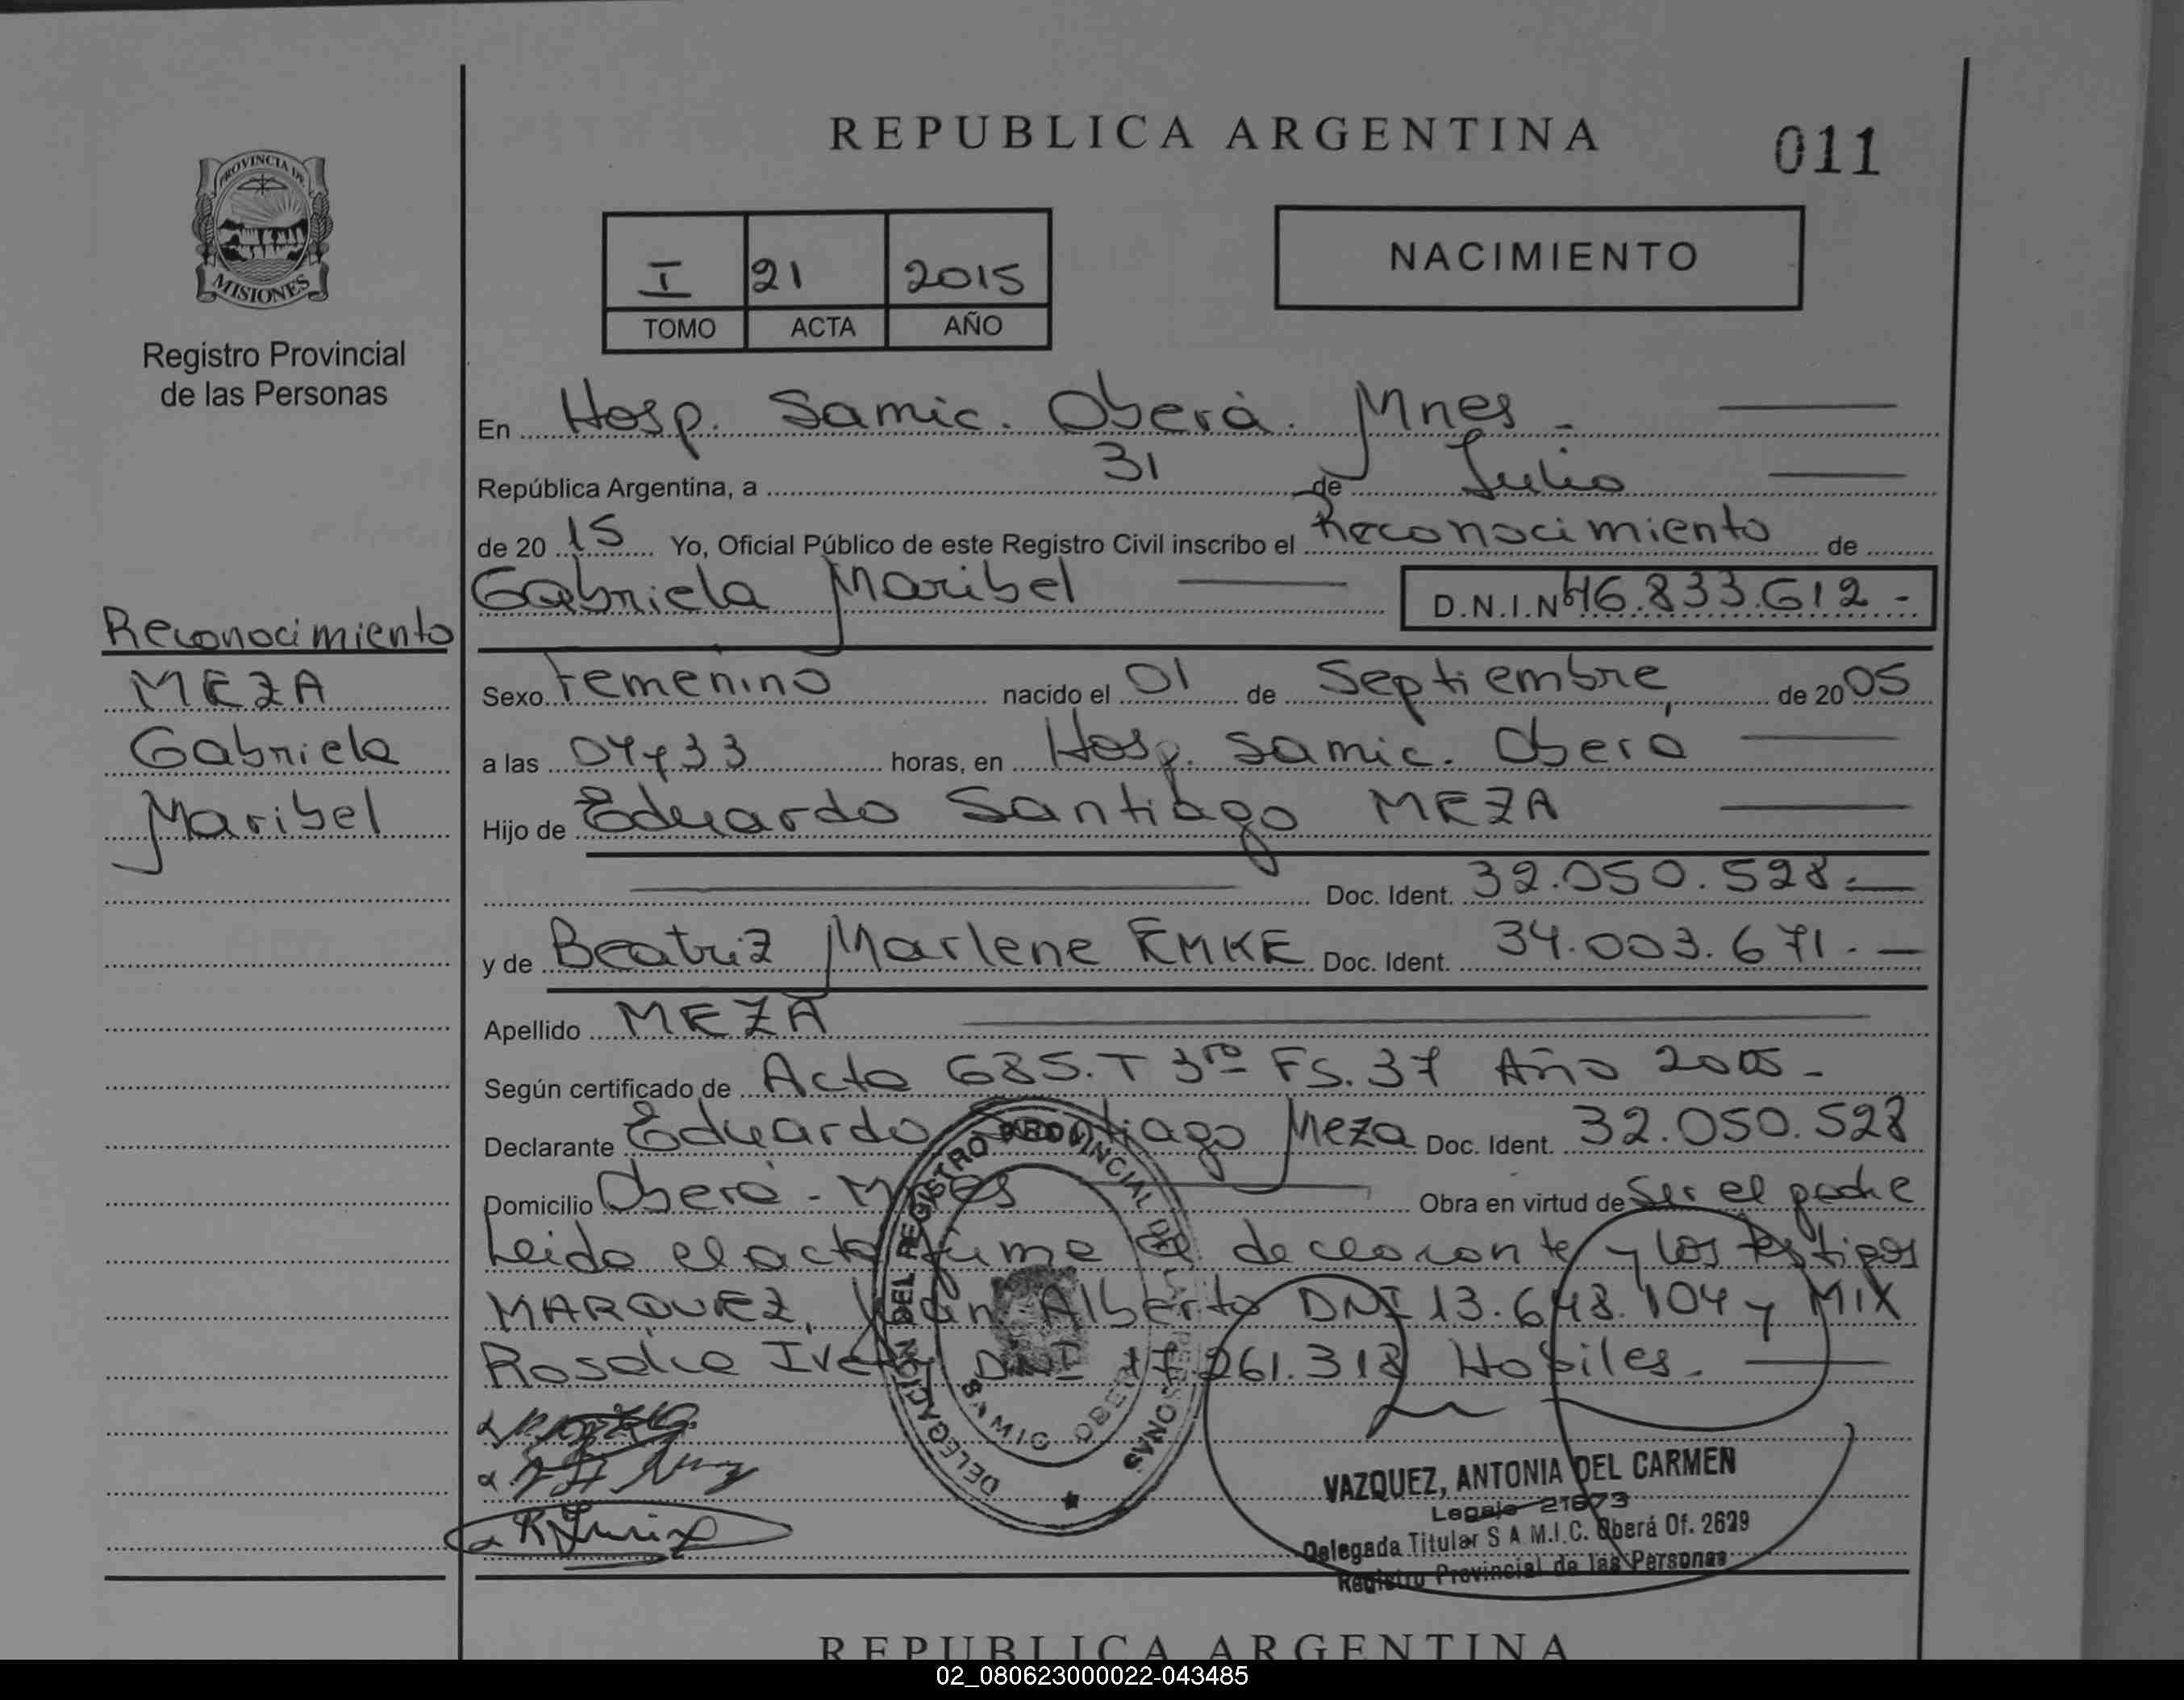 REPUBLICA ARGENTINA
011
PROVINCIA DE
MISIONES
Registro Provincial
de las Personas
I 21 2015
TOMO ACTA AÑO
NACIMIENTO
En Hosp. Samic. Oberá. Mnes.
República Argentina, a 31 de Julio
de 2015 Yo, Oficial Público de este Registro Civil inscribo el Reconocimiento de
Gabriela Maribel D.N.I.Nº 46.833.612 -
Reconocimiento
MEZA
Gabriela
Maribel
Sexo Femenino nacido el 01 de Septiembre, de 2005
a las horas, en Hosp. Samic. Oberá
Hijo de Eduardo Santiago MEZA
Doc. Ident. 32.050.528.
y de Beatriz Marlene EMKE Doc. Ident. 34.003.671.
Apellido MEZA
Según certificado de Acta 685. T 3ro FS. 37 Año 2005 -
Declarante Eduardo Santiago Meza Doc. Ident. 32.050.528
Domicilio Oberá - Mnes Obra en virtud de Ser el padre
Leida el acta firma el declarante y los testigos
MARQUEZ, Alberto DNI 13.648.104 y MIX
Rosalia DNI 17.261.318 Habiles.
DELEGACION DEL REGISTRO PROVINCIAL DE LAS PERSONAS
SAMIC OBERA
VAZQUEZ, ANTONIA DEL CARMEN
Legajo 21673
Delegada Titular S A M.I.C. Oberá Of. 2629
Registro Provincial de las Personas
REPUBLICA ARGENTINA
02_080623000022-043485